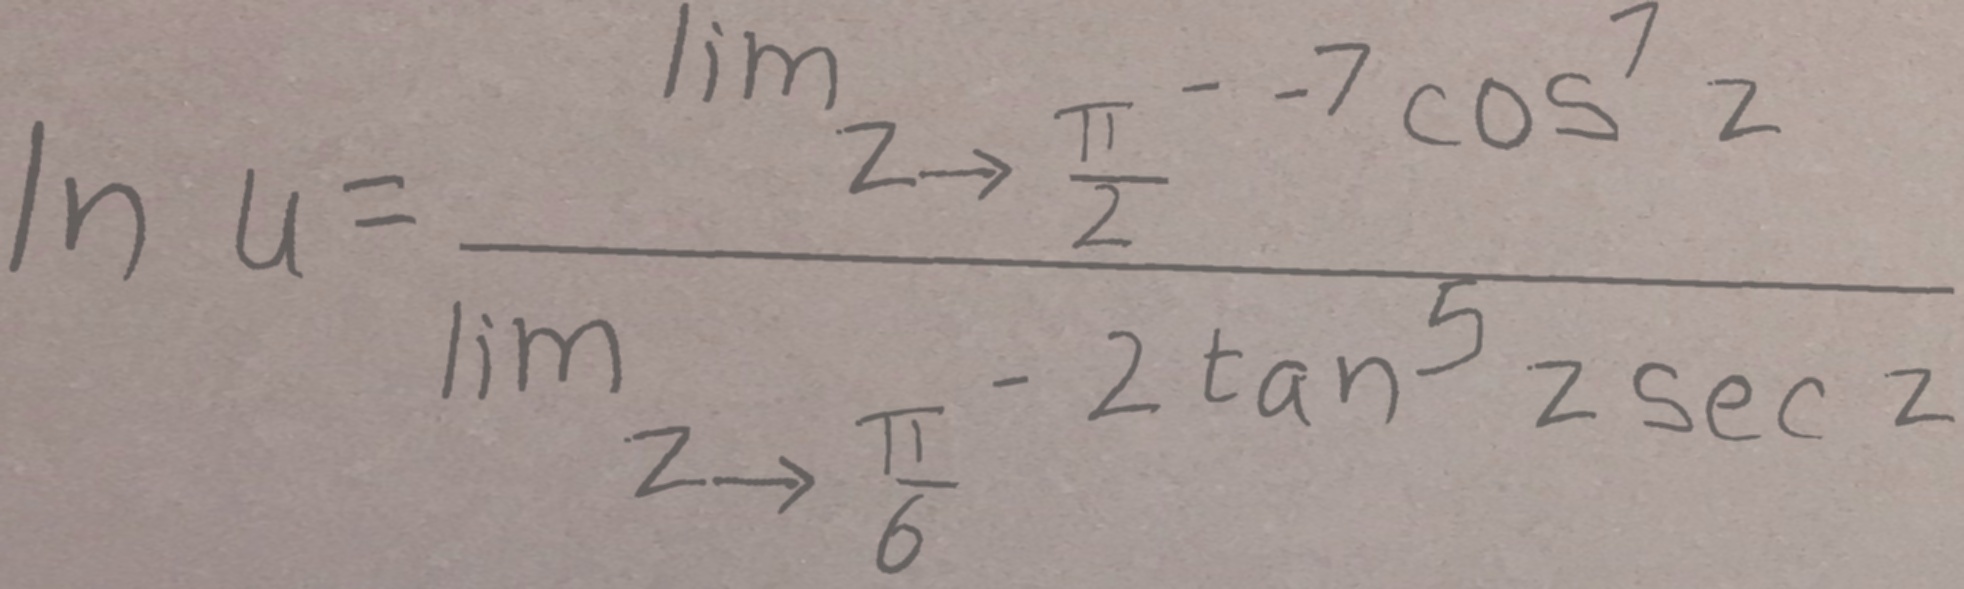 \ln u = \frac{\lim_{z \to \frac{\pi}{2}^{-}} -7 \cos^{7} z}{\lim_{z \to \frac{\pi}{6}^{-}} 2 \tan^{5} z \sec z}